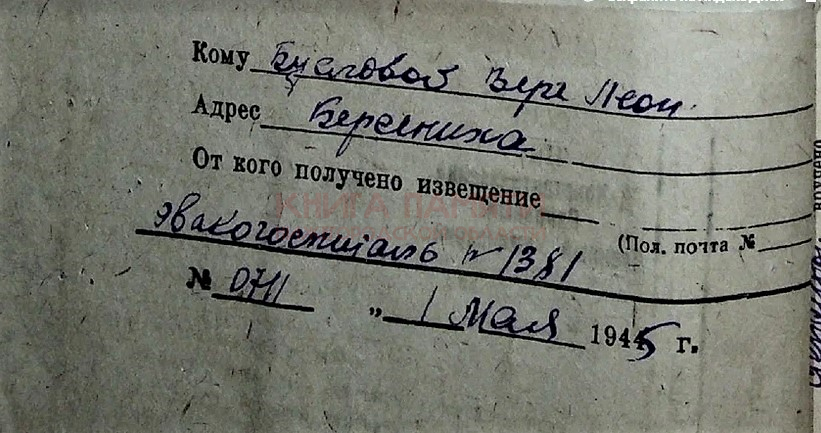 Кому Вере Леон.
Адрес Берсениха
От кого получено извещение
КНИГА ПАМЯТИ
эвакогоспиталь №1381
(Пол. почта №
№ 0711 „ 1 Мая 1945 г.
вручено